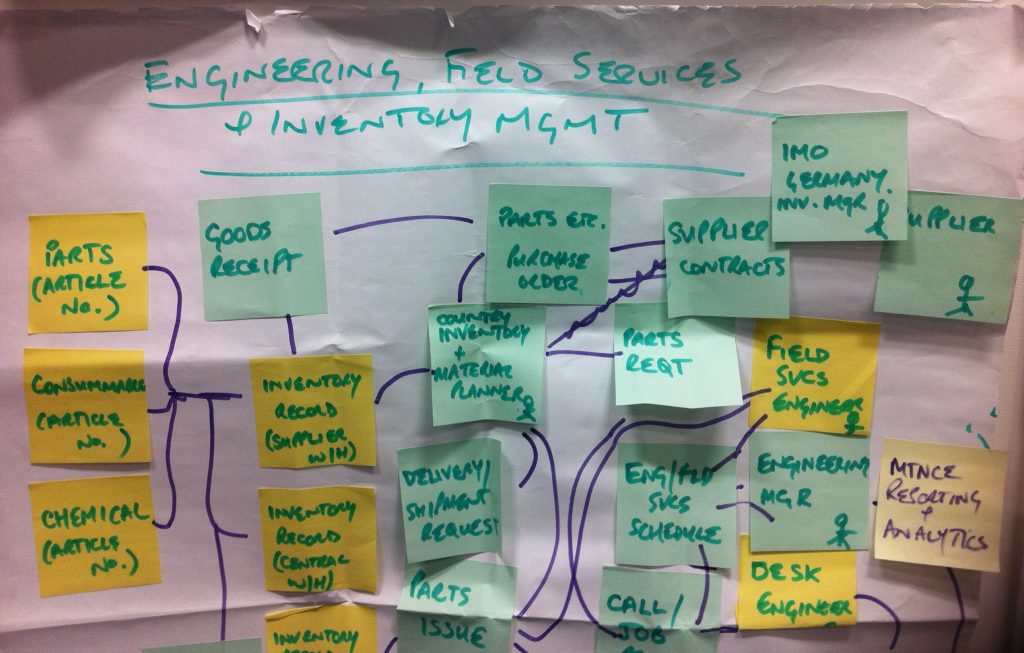 ENGINEERING, FIELD SERVICES
& INVENTORY MGMT
IMO
GERMANY.
INV. MGR
PARTS
(ARTICLE
No.)
GOODS
RECEIPT
PARTS ETC.
PURCHASE
ORDER.
SUPPLIER
CONTRACTS
SUPPLIER
COUNTRY
INVENTORY
+
MATERIAL
PLANNER
PARTS
REQT
FIELD
SVCS
ENGINEER
CONSUMMABLE
(ARTICLE
No.)
INVENTORY
RECORD
(SUPPLIER
W/H)
DELIVERY/
SHIPMENT
REQUEST
ENG/FLD
SVCS
SCHEDULE
ENGINEERING
MGR
MTNCE
REPORTING
+
ANALYTICS
CHEMICAL
(ARTICLE
No.)
INVENTORY
RECORD
(CENTRAL
W/H)
PARTS
ISSUE
CALL/
JOB
DESK
ENGINEER
INVENTORY